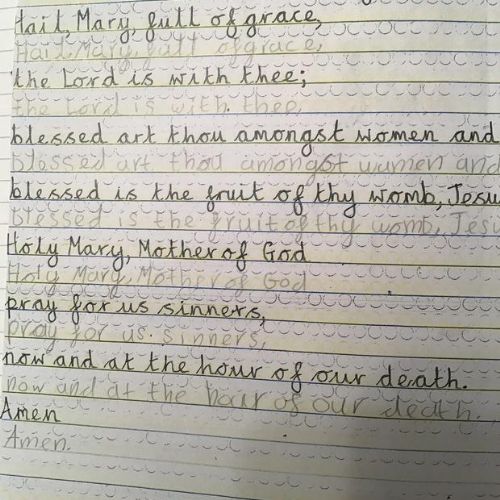 Hail, Mary, full of grace,
Hail, Mary, full of grace,
the Lord is with thee;
the Lord is with thee.
blessed art thou amongst women and
blessed art thou amongst women and
blessed is the fruit of thy womb, Jesu
blessed is the fruit of thy womb, Jesu
Holy Mary, Mother of God
Holy Mary, Mother of God
pray for us sinners,
pray for us sinners,
now and at the hour of our death.
now and at the hour of our death.
Amen
Amen.